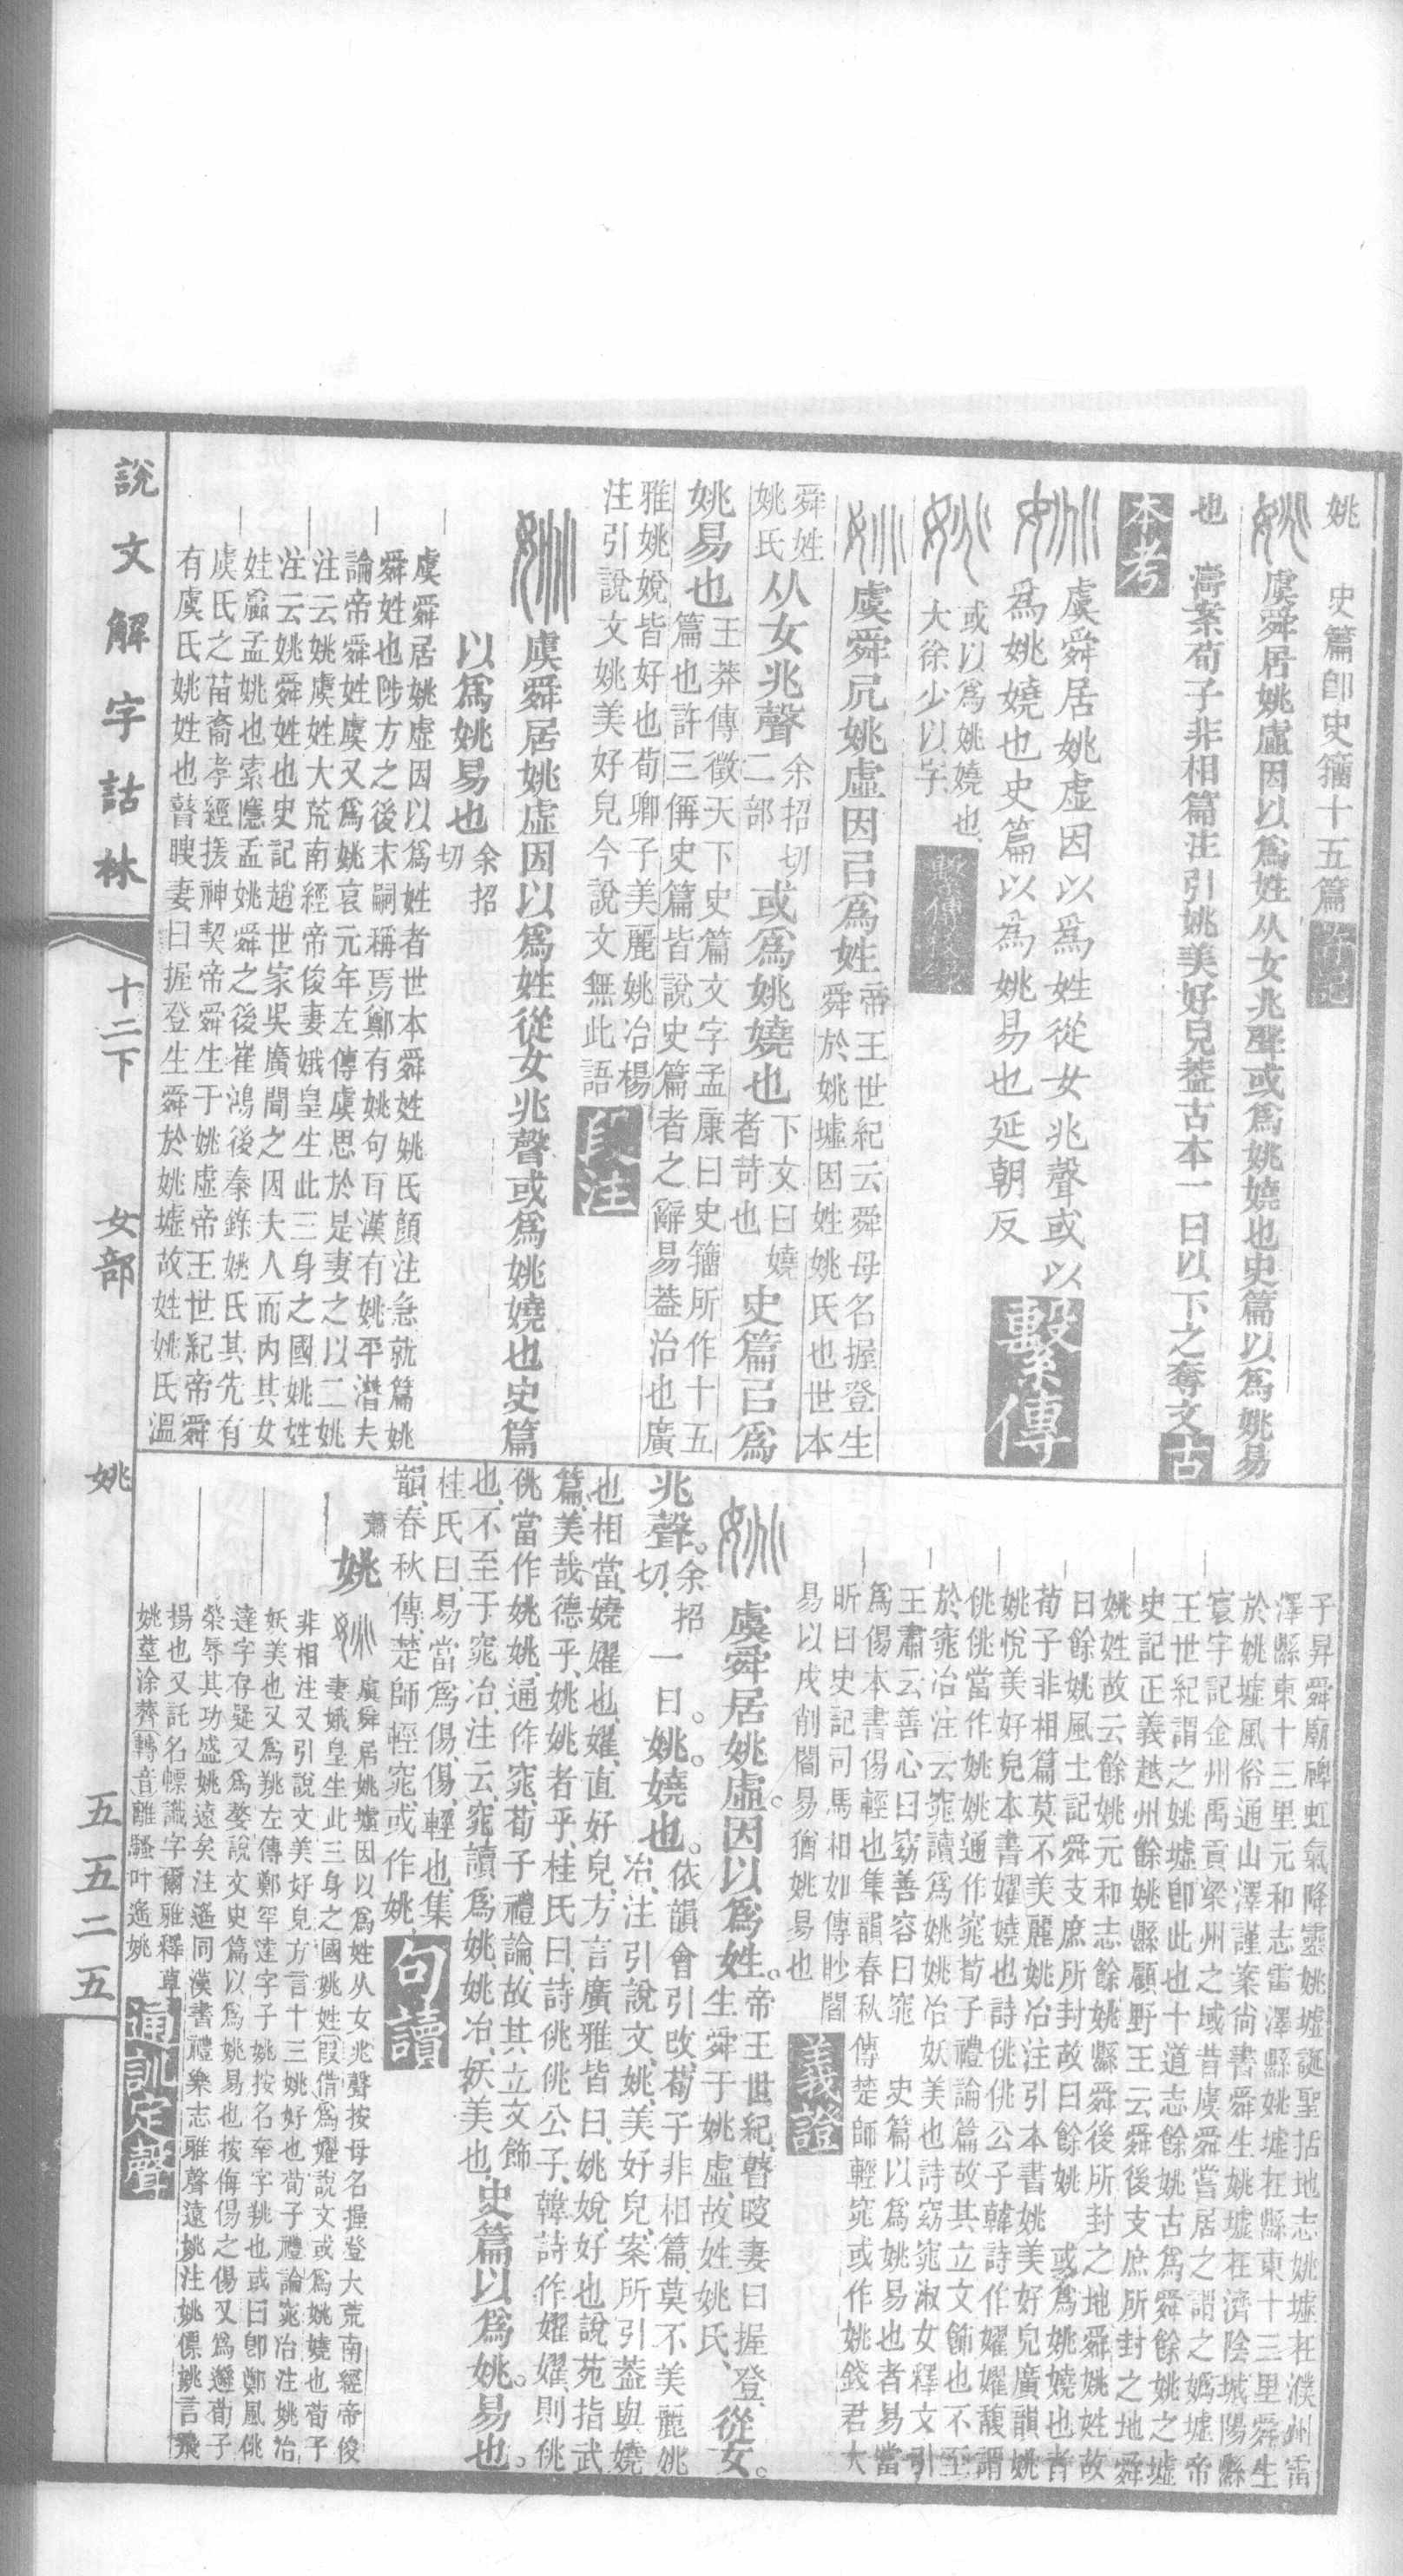 姚 史篇卽史籀十五篇
虞舜居姚虛因以爲姓从女兆聲或爲姚嬈也史篇以爲姚易
也 濤案荀子非相篇注引姚美好皃葢古本一曰以下之奪文古
本考
虞舜居姚虛因以爲姓從女兆聲或以
爲姚嬈也史篇以爲姚易也延朝反 繫傳
或以爲姚嬈也
大徐少以字
虞舜凥姚虛因㠯爲姓
帝王世紀云舜母名握登生
舜於姚墟因姓姚氏也世本
舜姓
姚氏
从女兆聲
余招切
二部
或爲姚嬈也
下文曰嬈
者苛也
史篇㠯爲
姚易也
王莽傳徵天下史篇文字孟康曰史籀所作十五
篇也許三偁史篇皆說史篇者之辭易葢治也廣
雅姚娧皆好也荀卿子美麗姚冶楊
注引說文姚美好皃今說文無此語 段注
虞舜居姚虛因以爲姓從女兆聲或爲姚嬈也史篇
以爲姚易也
余招
切
虞舜居姚虛因以爲姓者世本舜姓姚氏顏注急就篇姚
舜姓也陟方之後末嗣稱焉鄭有姚句耳漢有姚平潛夫
論帝舜姓虞又爲姚哀元年左傳虞思於是妻之以二姚
注云姚虞姓大荒南經帝俊妻娥皇生此三身之國姚姓
注云姚舜姓也史記趙世家吳廣聞之因夫人而內其女
娃嬴孟姚也索隱孟姚舜之後崔鴻後秦錄姚氏其先有
虞氏之苗裔孝經援神契帝舜生于姚虛帝王世紀帝舜
有虞氏姚姓也瞽瞍妻曰握登生舜於姚墟故姓姚氏溫
子昇舜廟碑虹氣降靈姚墟誕聖括地志姚墟在濮州雷
澤縣東十三里元和志雷澤縣姚墟在縣東十三里舜生
於姚墟風俗通山澤謹案尚書舜生姚墟在濟陰城陽縣
寰宇記金州禹貢梁州之域昔虞舜嘗居之謂之嬀墟帝
王世紀謂之姚墟卽此也十道志餘姚古爲舜餘姚之墟
史記正義越州餘姚縣顧野王云舜後支庶所封之地舜
姚姓故云餘姚元和志餘姚縣舜後所封之地舜姚姓故
曰餘姚風土記舜支庶所封故曰餘姚 或爲姚嬈也者
荀子非相篇莫不美麗姚冶注引本書姚美好皃廣韻姚
姚悅美好皃本書嬥嬈也詩佻佻公子韓詩作嬥嬥馥謂
佻佻當作姚姚通作窕荀子禮論篇故其立文飾也不至
於窕冶注云窕讀爲姚姚冶妖美也詩窈窕淑女釋文引
王肅云善心曰窈善容曰窕 史篇以爲姚易也者易當
爲傷本書傷輕也集韻春秋傳楚師輕窕或作姚錢君大
昕曰史記司馬相如傳眇閻
易以戌削閻易猶姚易也 義證
虞舜居姚虛。因以爲姓。
帝王世紀、瞽瞍妻曰握登、
生舜于姚虛、故姓姚氏、
從女。
兆聲。
余招
切、
一曰。姚。嬈也。
依韻會引改、荀子非相篇、莫不美麗姚
冶、注引說文、姚、美好皃、案所引葢與嬈
也相當、嬈嬥也、嬥、直好皃、方言廣雅皆曰、姚娧、好也說苑指武
篇、美哉德乎、姚姚者乎、桂氏曰、詩佻佻公子、韓詩作嬥嬥、則佻
佻當作姚姚、通作窕、荀子禮論、故其立文飾
也、不至于窕冶、注云、窕讀爲姚、姚冶、妖美也、
史篇以爲姚。易也。
桂氏曰、易當爲傷、傷、輕也、集
韻、春秋傳、楚師輕窕、或作姚、 句讀
蕭
姚
虞舜居姚墟因以爲姓从女兆聲按母名握登大荒南經帝俊
妻娥皇生此三身之國姚姓 假借爲嬥說文或爲姚嬈也荀子
非相注又引說文美好皃方言十三姚好也荀子禮論窕冶注姚冶
妖美也又爲羪左傳鄭罕達字子姚按名羍字羪也或曰卽鄭風佻
達字存疑又爲婺說文史篇以爲姚易也按侮傷之傷又爲遴荀子
榮辱其功盛姚遠矣注遙同漢書禮樂志雅聲遠姚注姚僄姚言飛
揚也又託名幖識字爾雅釋草
姚莖涂薺 轉音 離騷叶遙姚 通訓定聲
說文解字詁林 十二下 女部 姚 五五二五